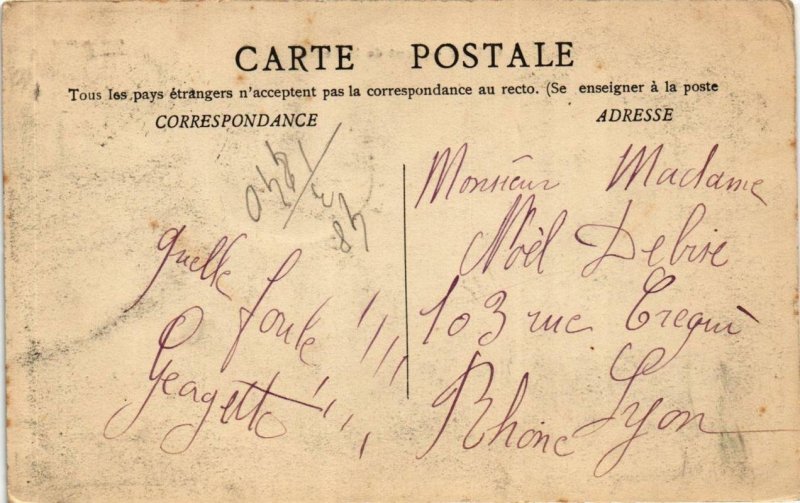 CARTE POSTALE
Tous les pays étrangers n'acceptent pas la correspondance au recto. (Se enseigner à la poste
CORRESPONDANCE
ADRESSE
quelle
foule !,,
Georgette !,,,
Monsieur Madame
Noël Debise
103 rue Crequi
Lyon
Rhône